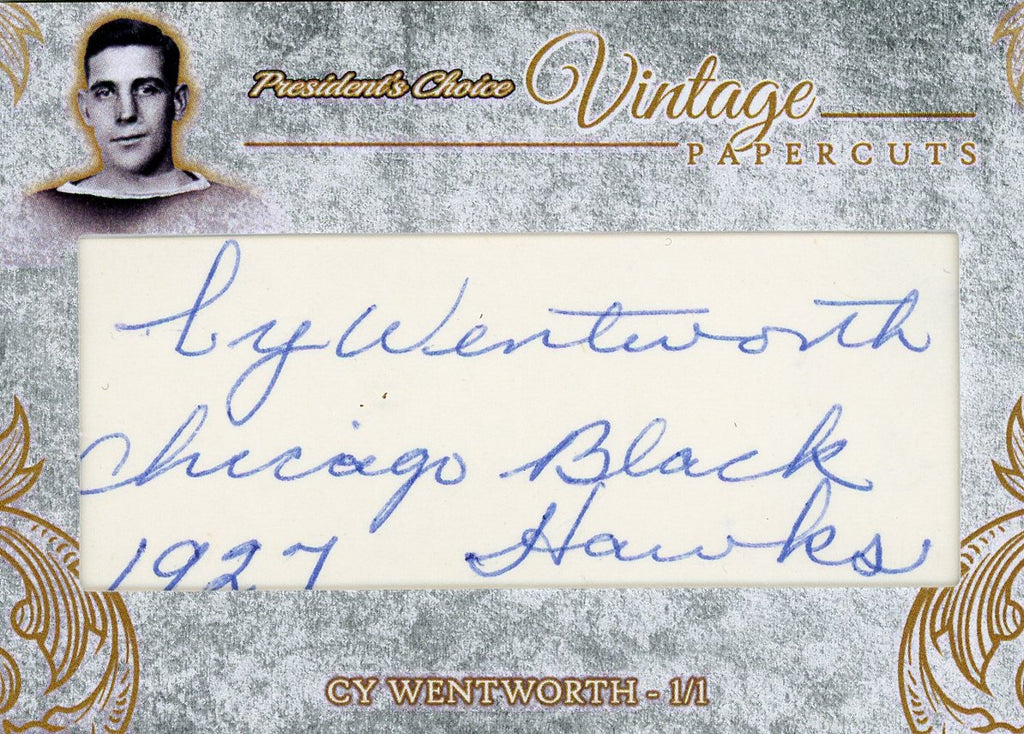 President's Choice Vintage
PAPERCUTS
Cy Wentworth
Chicago Black
Hawks
1927
CY WENTWORTH - 1/1